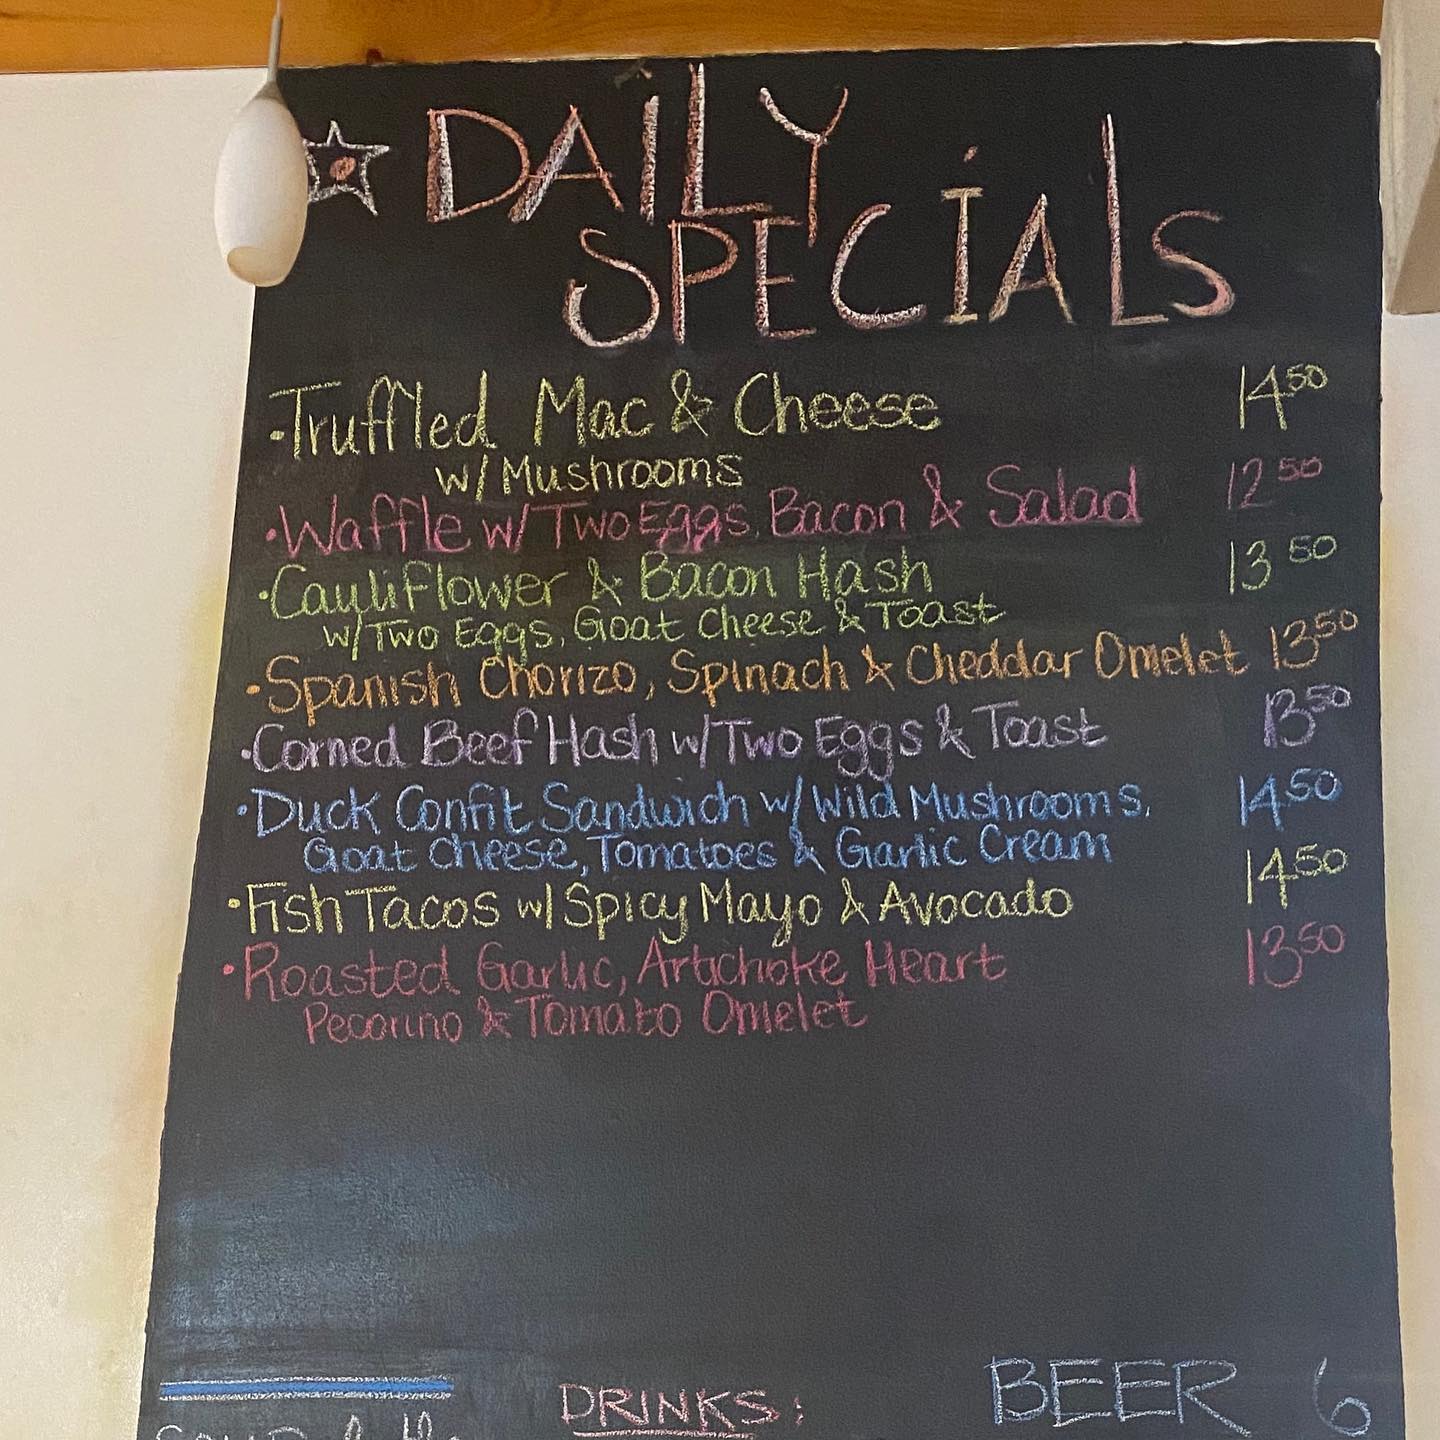 DAILY
SPECIALS
•Truffled Mac & Cheese 14.50
w/ Mushrooms
•Waffle w/ Two Eggs, Bacon & Salad 12.50
•Cauliflower & Bacon Hash 13.50
w/ Two Eggs, Goat Cheese & Toast
•Spanish Chorizo, Spinach & Cheddar Omelet 13.50
•Corned Beef Hash w/ Two Eggs & Toast 13.50
•Duck Confit Sandwich w/ Wild Mushrooms, 14.50
Goat Cheese, Tomatoes & Garlic Cream
•Fish Tacos w/ Spicy Mayo & Avocado 14.50
•Roasted Garlic, Artichoke Heart 13.50
Pecorino & Tomato Omelet
DRINKS: BEER 6